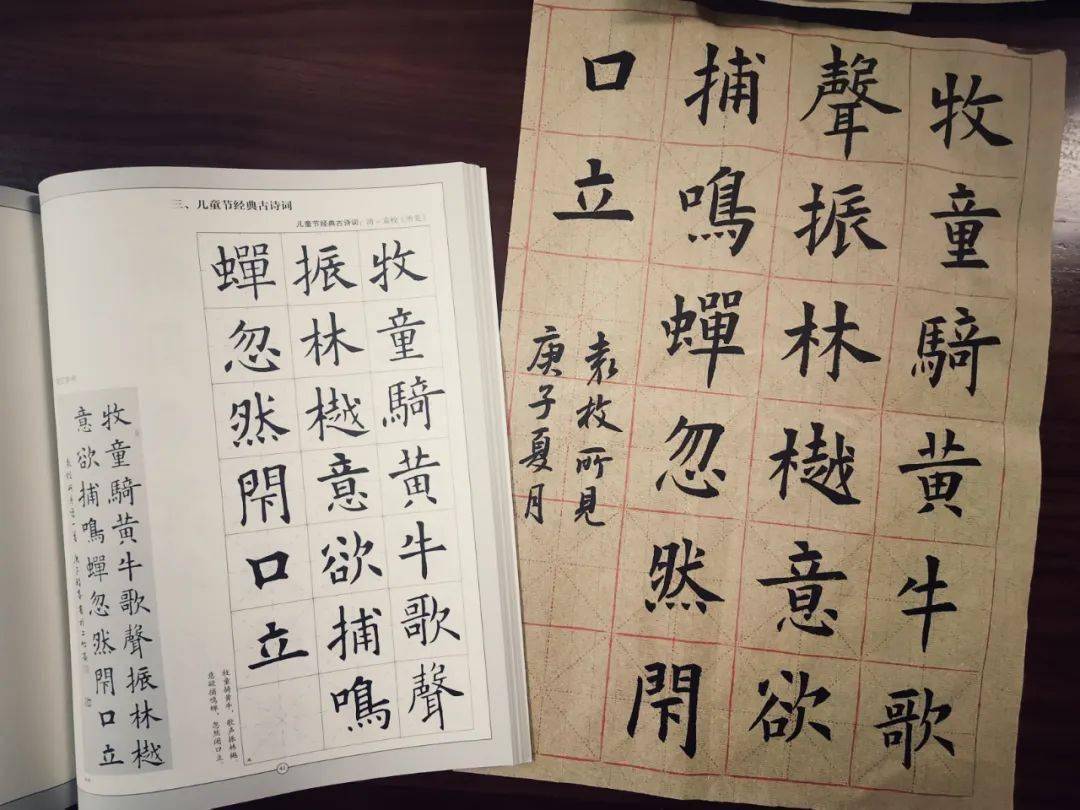 三、儿童节经典古诗词
儿童节经典古诗词：清·袁枚《所见》
牧童騎黄牛歌聲
振林樾意欲捕鳴
蟬忽然閇口立
牧童骑黄牛，歌声振林樾。
意欲捕鸣蝉，忽然闭口立。
41
牧童騎黄牛歌聲振林樾
意欲捕鳴蟬忽然閇口立
牧童騎黄牛歌
聲振林樾意欲
捕鳴蟬忽然閇
口立
袁枚所見
庚子夏月